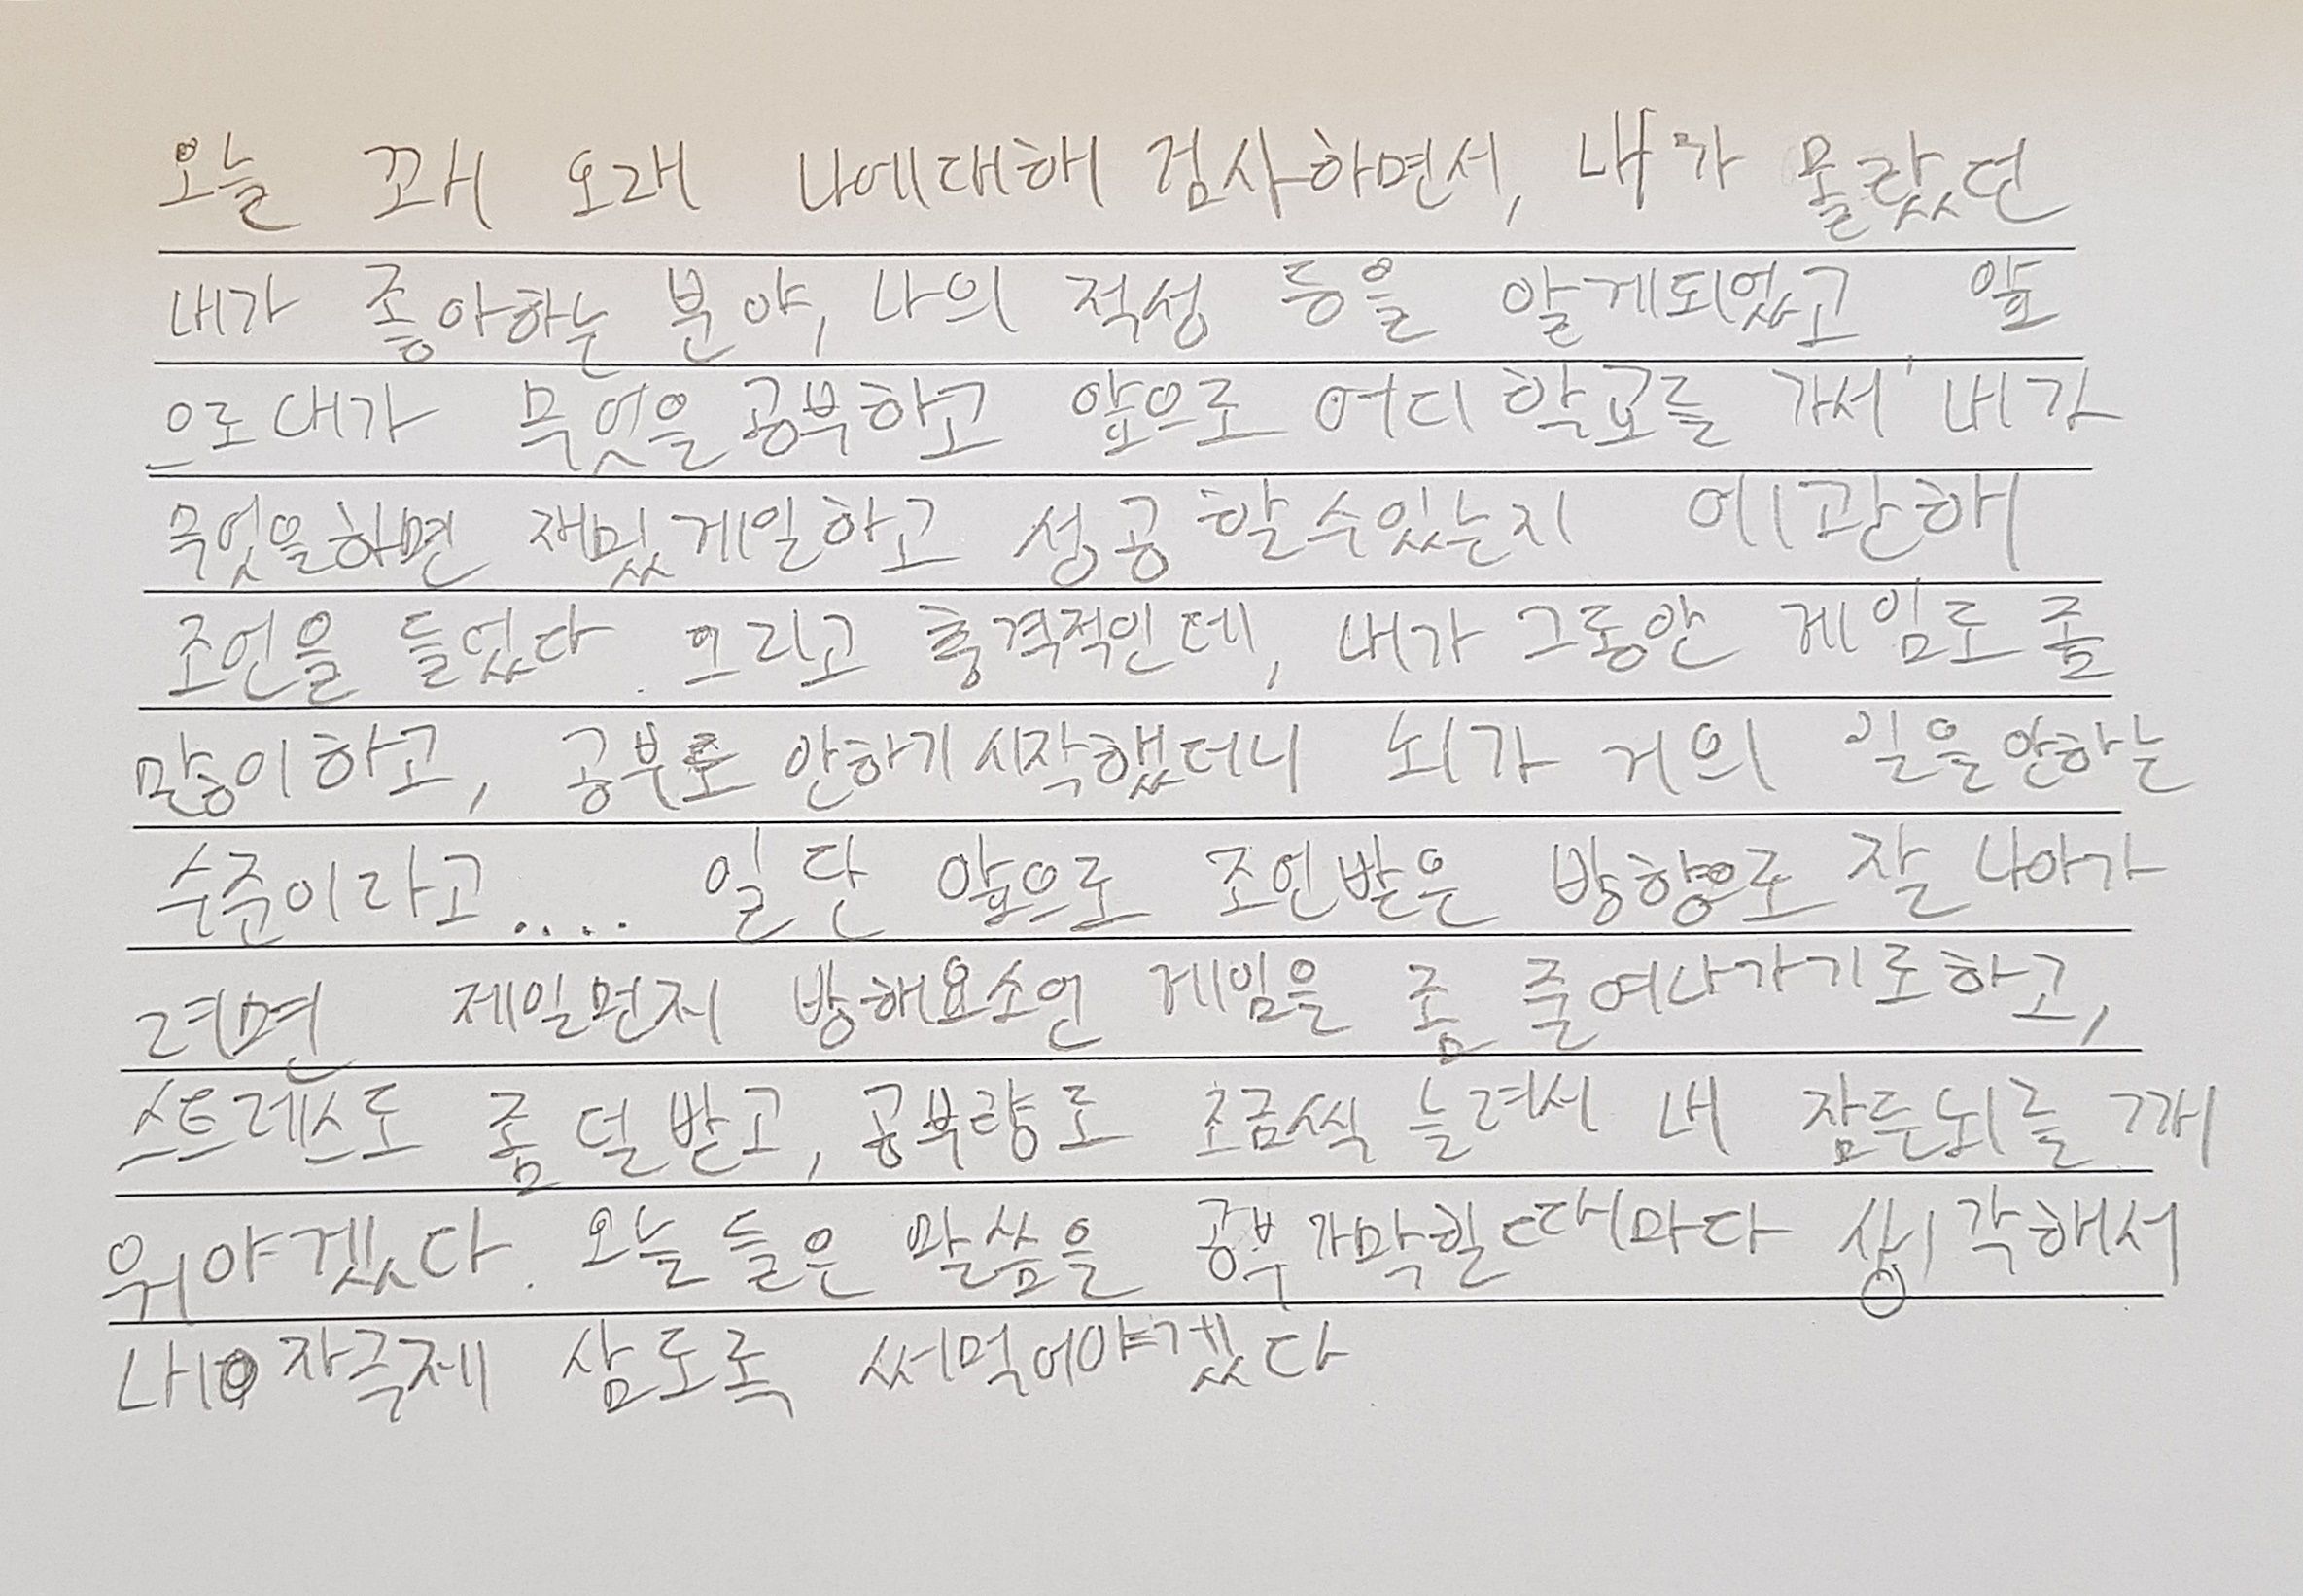 오늘 꽤 오래 나에대해 검사하면서, 내가 몰랐던
내가 좋아하는 분야, 나의 적성 등을 알게되었고 앞
으로 내가 무엇을 공부하고 앞으로 어디 학교를 가서 내가
무엇을하면 재밌게일하고 성공 할수있는지 에관해
조언을 들었다. 그리고 충격적인데, 내가 그동안 게임도 좀
많이하고, 공부도 안하기 시작했더니 뇌가 거의 일을안하는
수준이라고.... 일단 앞으로 조언받은 방향으로 잘 나아가
려면 제일먼저 방해요소인 게임을 좀 줄여나가기로하고,
스트레스도 좀 덜받고, 공부량도 조금씩 늘려서 내 잠든뇌를 깨
워야겠다. 오늘 들은 말씀을 공부가막힐때마다 생각해서
내 자극제 삼도록 써먹어야겠다.